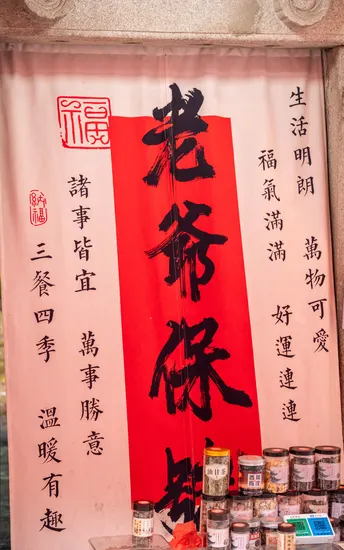 生活明朗 萬物可愛
福氣滿滿 好運連連
老爺保
福
諸事皆宜 萬事勝意
納福
三餐四季 溫暖有趣